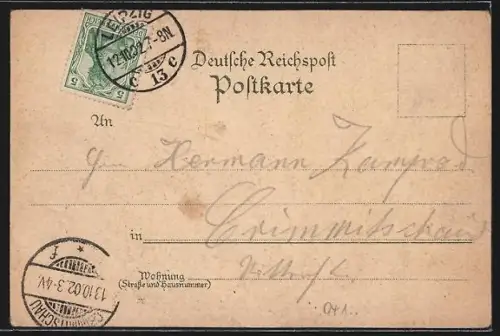 LEIPZIG
12.10.02.7-8N
13 c
5 5
Deutsche Reichspost
Postkarte
An
Hermann
in Crimmitschau
Wohnung
(Straße und Hausnummer)
13.10.02.3-4V.